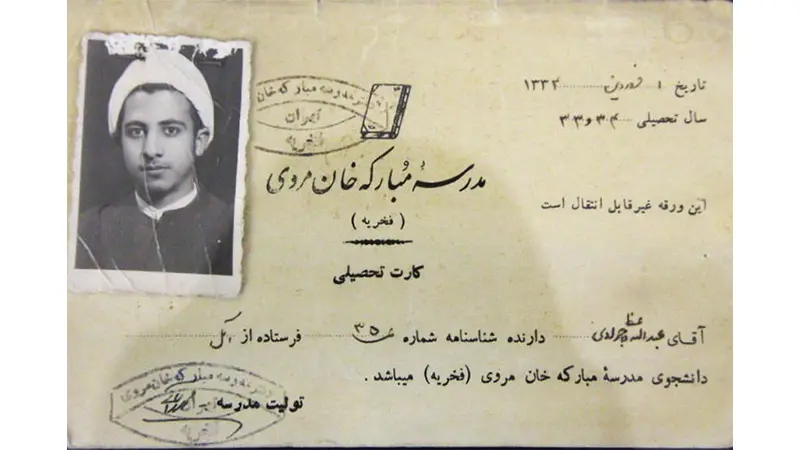 دفتر مدرسه مبارکه خان مروی
تهران
فخریه
تاریخ ۱ فروردین
سال تحصیلی ۳۴ و ۳۳
مدرسهٔ مبارکه خان مروی
( فخریه )
این ورقه غیرقابل انتقال است
کارت تحصیلی
آقای عبدالله جوادی دارنده شناسنامه شماره فرستاده از آمل
دانشجوی مدرسهٔ مبارکه خان مروی (فخریه) میباشد .
تولیت مدرسه
دفتر مدرسه مبارکه خان مروی
تهران
فخریه